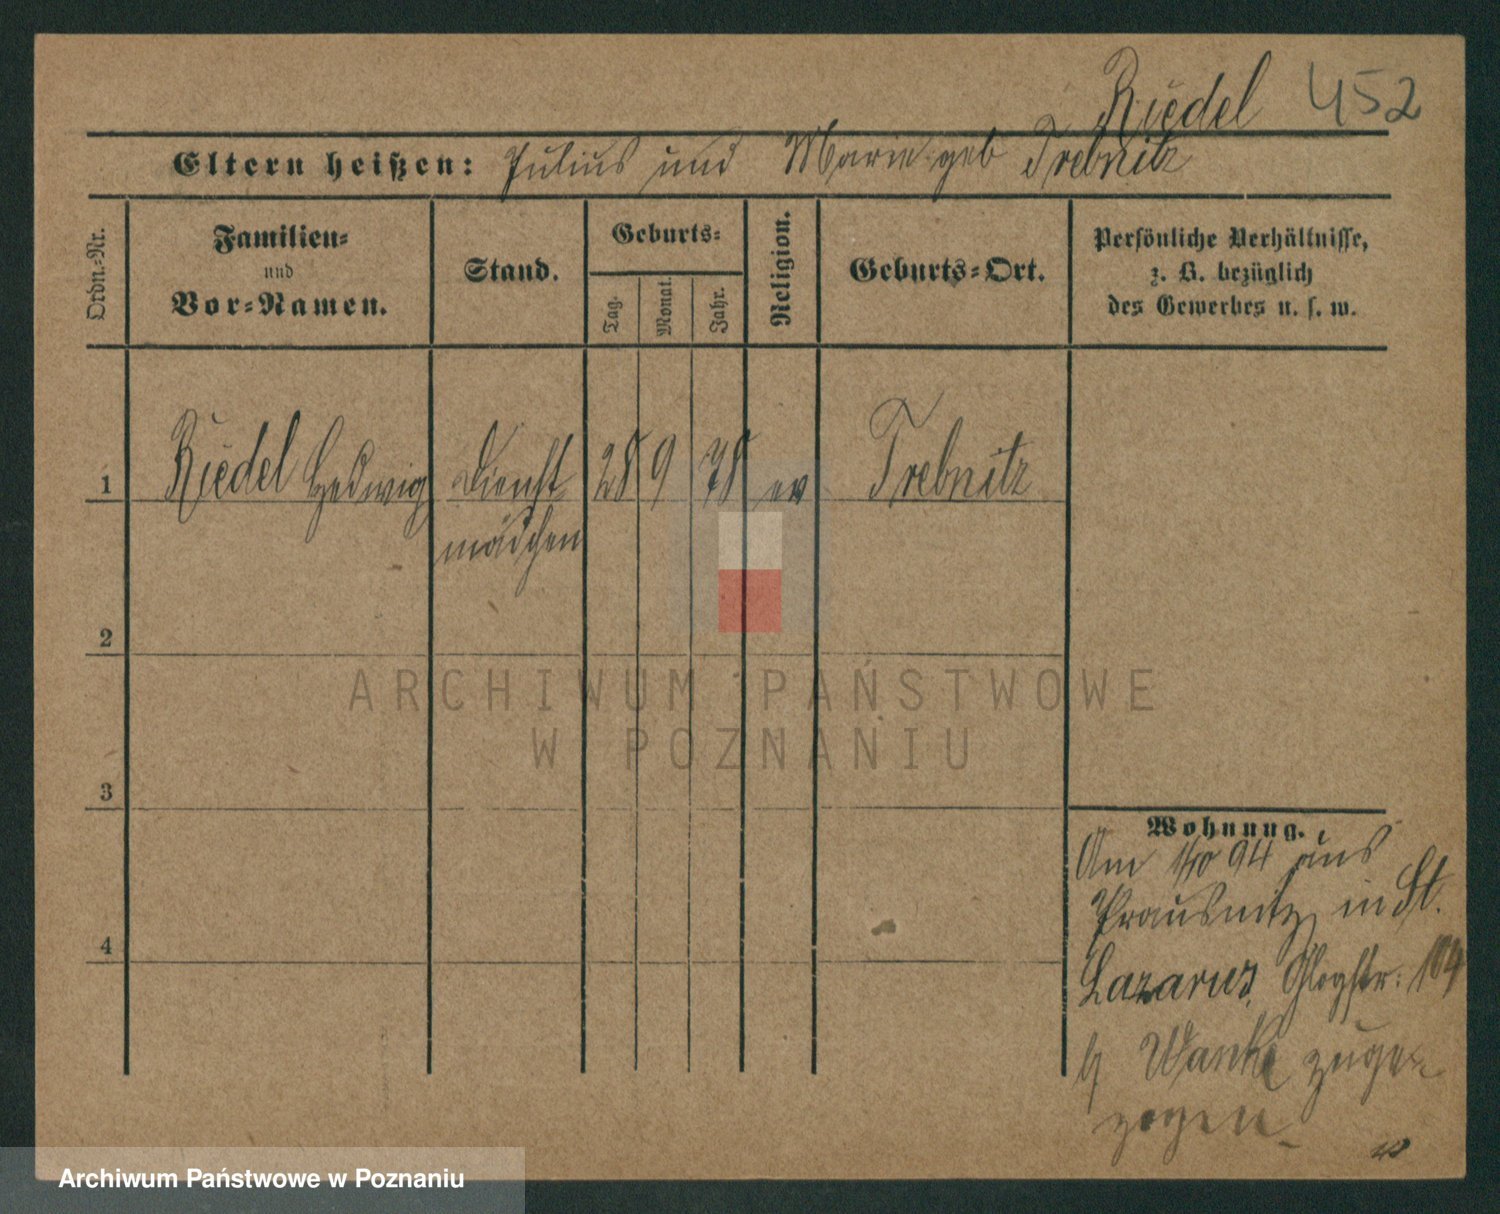 Riedel 452
Eltern heißen: Julius und Marie geb Trebnitz
Ordn.-Nr.
Familien-
und
Vor-Namen.
Stand.
Geburts-
Tag.
Monat.
Jahr.
Religion.
Geburts-Ort.
Persönliche Verhältnisse,
z. B. bezüglich
des Gewerbes u. s. w.
1 Riedel Hedwig Dienst 28 9 78 ev Trebnitz
mädchen
2
3
4
Wohnung.
Am 1/10 94 aus
Prausnitz in St.
Lazarus, Glogstr: 104
b Wanke zuge-
zogen
ARCHIWUM PAŃSTWOWE
W POZNANIU
Archiwum Państwowe w Poznaniu